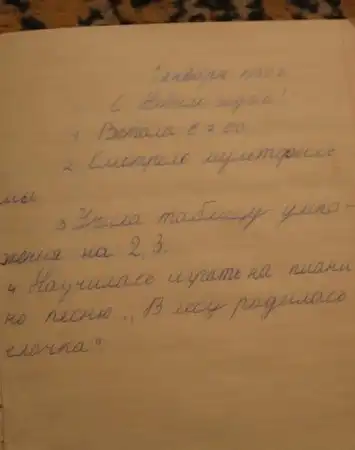 января
С Новым годом!
1 Встала в 7.00
2 Смотрела мультфиль
мы
3 Учила таблицу умно-
жения на 2, 3.
4 Научилась играть на пиани
но песню „В лесу родилась
елочка".